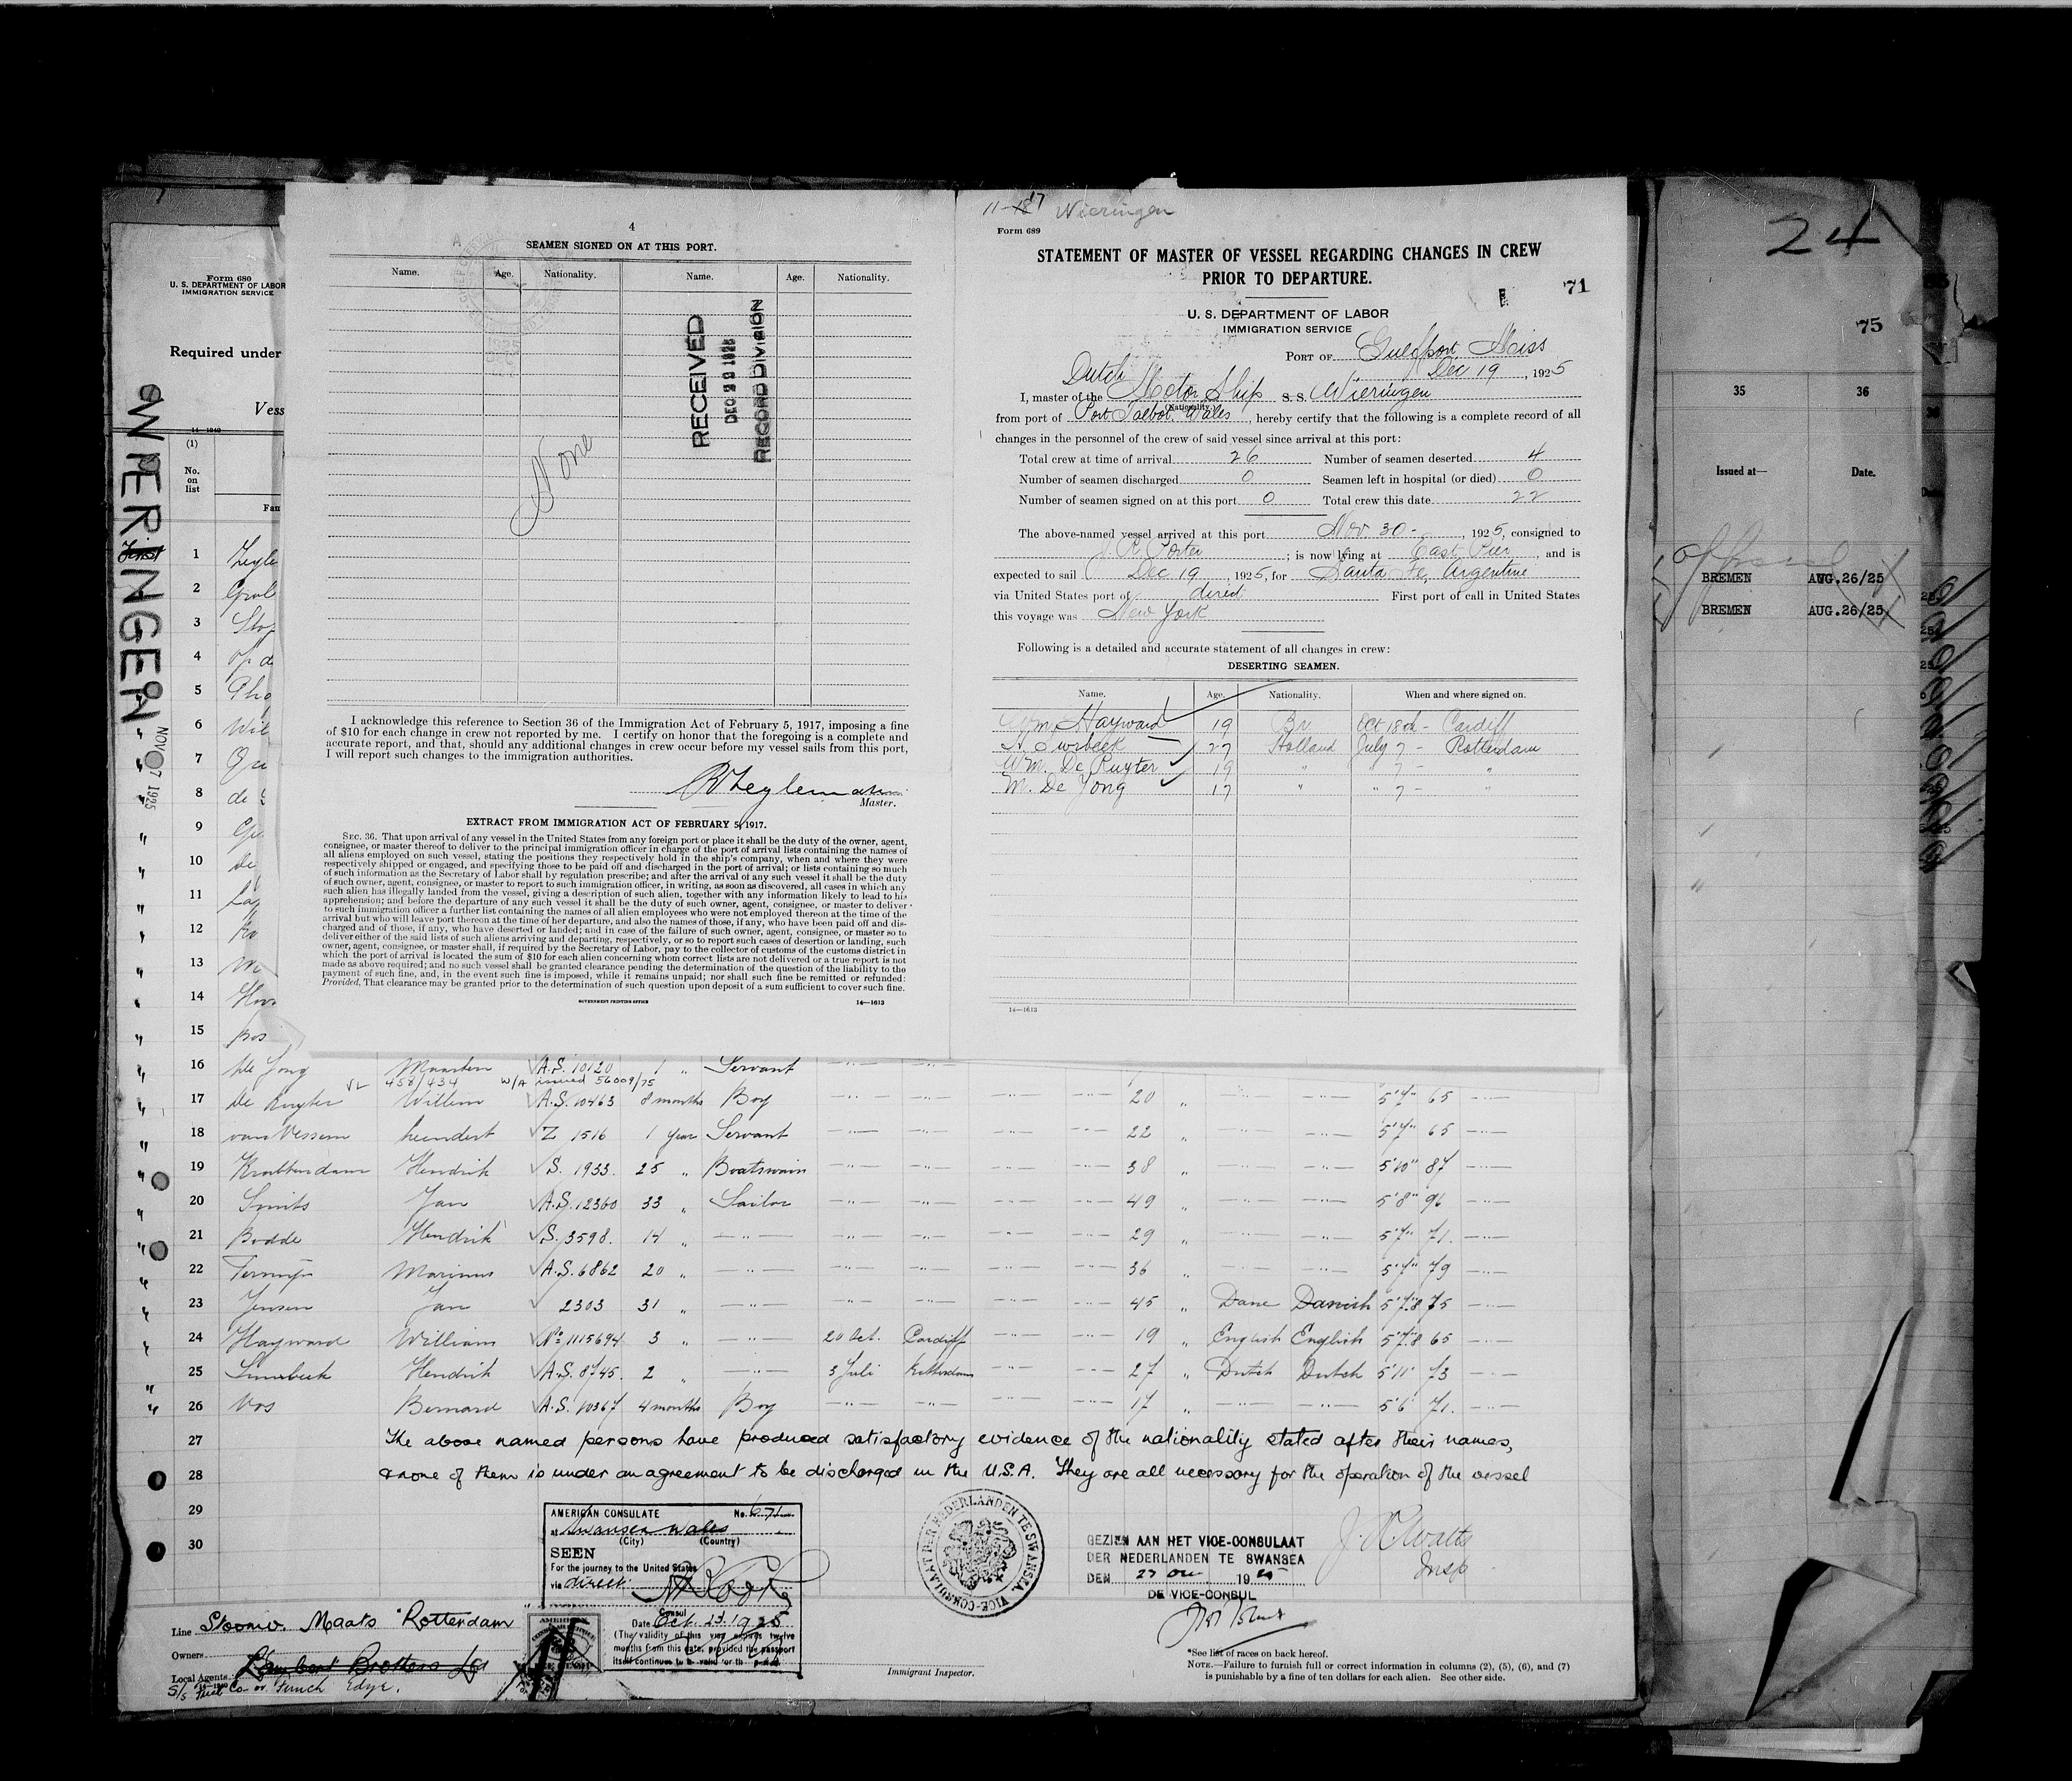 4
SEAMEN SIGNED ON AT THIS PORT.
Name. Age. Nationality. Name. Age. Nationality.
RECEIVED
DEC 29 1925
RECORD DIVISION
None
I acknowledge this reference to Section 36 of the Immigration Act of February 5, 1917, imposing a fine
of $10 for each change in crew not reported by me. I certify on honor that the foregoing is a complete and
accurate report, and that, should any additional changes in crew occur before my vessel sails from this port,
I will report such changes to the immigration authorities.
Master.
EXTRACT FROM IMMIGRATION ACT OF FEBRUARY 5, 1917.
SEC. 36. That upon arrival of any vessel in the United States from any foreign port or place it shall be the duty of the owner, agent,
consignee, or master thereof to deliver to the principal immigration officer in charge of the port of arrival lists containing the names of
all aliens employed on such vessel, stating the positions they respectively hold in the ship's company, when and where they were
respectively shipped or engaged, and specifying those to be paid off and discharged in the port of arrival; or lists containing so much
of such information as the Secretary of Labor shall by regulation prescribe; and after the arrival of any such vessel it shall be the duty
of such owner, agent, consignee, or master to report to such immigration officer, in writing, as soon as discovered, all cases in which any
such alien has illegally landed from the vessel, giving a description of such alien, together with any information likely to lead to his
apprehension; and before the departure of any such vessel it shall be the duty of such owner, agent, consignee, or master to deliver
to such immigration officer a further list containing the names of all alien employees who were not employed thereon at the time of the
arrival but who will leave port thereon at the time of her departure, and also the names of those, if any, who have been paid off and dis-
charged and of those, if any, who have deserted or landed; and in case of the failure of such owner, agent, consignee, or master so to
deliver either of the said lists of such aliens arriving and departing, respectively, or so to report such cases of desertion or landing, such
owner, agent, consignee, or master shall, if required by the Secretary of Labor, pay to the collector of customs of the customs district in
which the port of arrival is located the sum of $10 for each alien concerning whom correct lists are not delivered or a true report is not
made as above required; and no such vessel shall be granted clearance pending the determination of the question of the liability to the
payment of such fine, and, in the event such fine is imposed, while it remains unpaid; nor shall such fine be remitted or refunded:
Provided, That clearance may be granted prior to the determination of such question upon deposit of a sum sufficient to cover such fine.
GOVERNMENT PRINTING OFFICE 14—1613
11-18 17 Wieringen
Form 689
STATEMENT OF MASTER OF VESSEL REGARDING CHANGES IN CREW
PRIOR TO DEPARTURE.
71
U. S. DEPARTMENT OF LABOR
IMMIGRATION SERVICE
PORT OF Gulfport, Miss
Dec 19, 1925
I, master of the Dutch Motor Ship S. S. Wieringen
(Nationality)
from port of Port Talbot, Wales, hereby certify that the following is a complete record of all
changes in the personnel of the crew of said vessel since arrival at this port:
Total crew at time of arrival 26 Number of seamen deserted 4
Number of seamen discharged 0 Seamen left in hospital (or died) 0
Number of seamen signed on at this port 0 Total crew this date 22
The above-named vessel arrived at this port Nov. 30 -, 1925, consigned to
J. R. Porter; is now lying at East Pier, and is
expected to sail Dec 19, 1925, for Santa Fe, Argentine
via United States port of direct First port of call in United States
this voyage was New York
Following is a detailed and accurate statement of all changes in crew:
DESERTING SEAMEN.
Name. Age. Nationality. When and where signed on.
Wm. Hayward 19 Br Oct 18th - Cardiff
27 Holland July 7 - Rotterdam
Wm. De Ruyter 19 " " 7 - "
M. De Jong 17 " " 7 - "
14—1613
Form 680
U. S. DEPARTMENT OF LABOR
IMMIGRATION SERVICE
Required under
Vess
14—1240
(1)
No.
on
list
Fam
WIERINGEN
NOV 7 1925
1 Zeyle
2 Grol
3
4 op d
5
6 Wil
7
8 de
9
10 De
11
12
13
14
15 Bos
16 De Jong Maarten A.S. 10120 1 " Servant
458/434 W/A issued 56009/75
17 De Ruyter Willem A.S. 10463 8 months Boy 20 " 5'7" 65
18 van Vessem Leendert Z 1516 1 year Servant 22 " 5'7" 65
19 Krabbendam Hendrik S. 1933. 25 " Boatswain 38 " 5'10" 87
20 Smits Jan A.S. 12360 33 " Sailor 49 " 5'8" 96
21 Bodde Hendrik S. 3598. 14 " 29 " 5'7" 71.
22 Marinus A.S. 6862 20 " 36 " 5'7" 79
23 Jensen Jan 2303 31 " 45 " Dane Danish 5'7.8 75
24 Hayward William No 1115694 3 " 20 Oct. Cardiff 19 " English English 5'7.8 65
25 Hendrik A.S. 8745. 2 " 3 Juli Rotterdam 27 " Dutch Dutch 5'11" 73
26 Vos Bernard A.S. 10367 4 months Boy 17 " 5'6" 71.
27 The above named persons have produced satisfactory evidence of the nationality stated after their names,
28 & none of them is under an agreement to be discharged in the U.S.A. They are all necessary for the operation of the vessel
29
30
AMERICAN CONSULATE No. 671
at Swansea Wales
(City) (Country)
SEEN
For the journey to the United States
via direct
Consul
Date Oct. 23. 1925
(The validity of this visa expires twelve
months from this date, provided the passport
itself continues to be valid for that period.
VICE-CONSULAAT DER NEDERLANDEN TE SWANSEA
GEZIEN AAN HET VICE-CONSULAAT
DER NEDERLANDEN TE SWANSEA
DEN 27 Oct 1925
DE VICE-CONSUL
Insp
Line Stoomv. Maats "Rotterdam
Owners
Local Agents Lambert Brothers Ltd
S/s Fuel Co. or Funch Edye.
Immigrant Inspector.
*See list of races on back hereof.
NOTE.—Failure to furnish full or correct information in columns (2), (5), (6), and (7)
is punishable by a fine of ten dollars for each alien. See other side.
24
75
35 36
Issued at— Date.
BREMEN AUG.26/25
BREMEN AUG.26/25